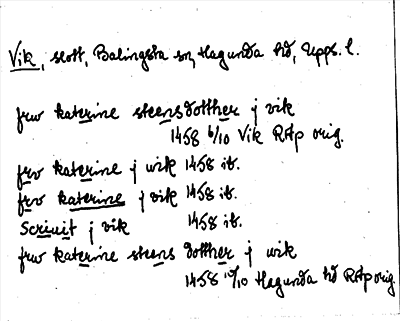 Vik, slott, Balingsta sn, Hagunda hd, Upps. l.
frw katerine steensdotther j vik
1458 6/10 Vik RAp orig.
frv katerine j wik 1458 ib.
frv katerine j vik 1458 ib.
Scriuit j vik 1458 ib.
frw katerine steens dotther j wik
1458 10/10 Hagunda hd RAp orig